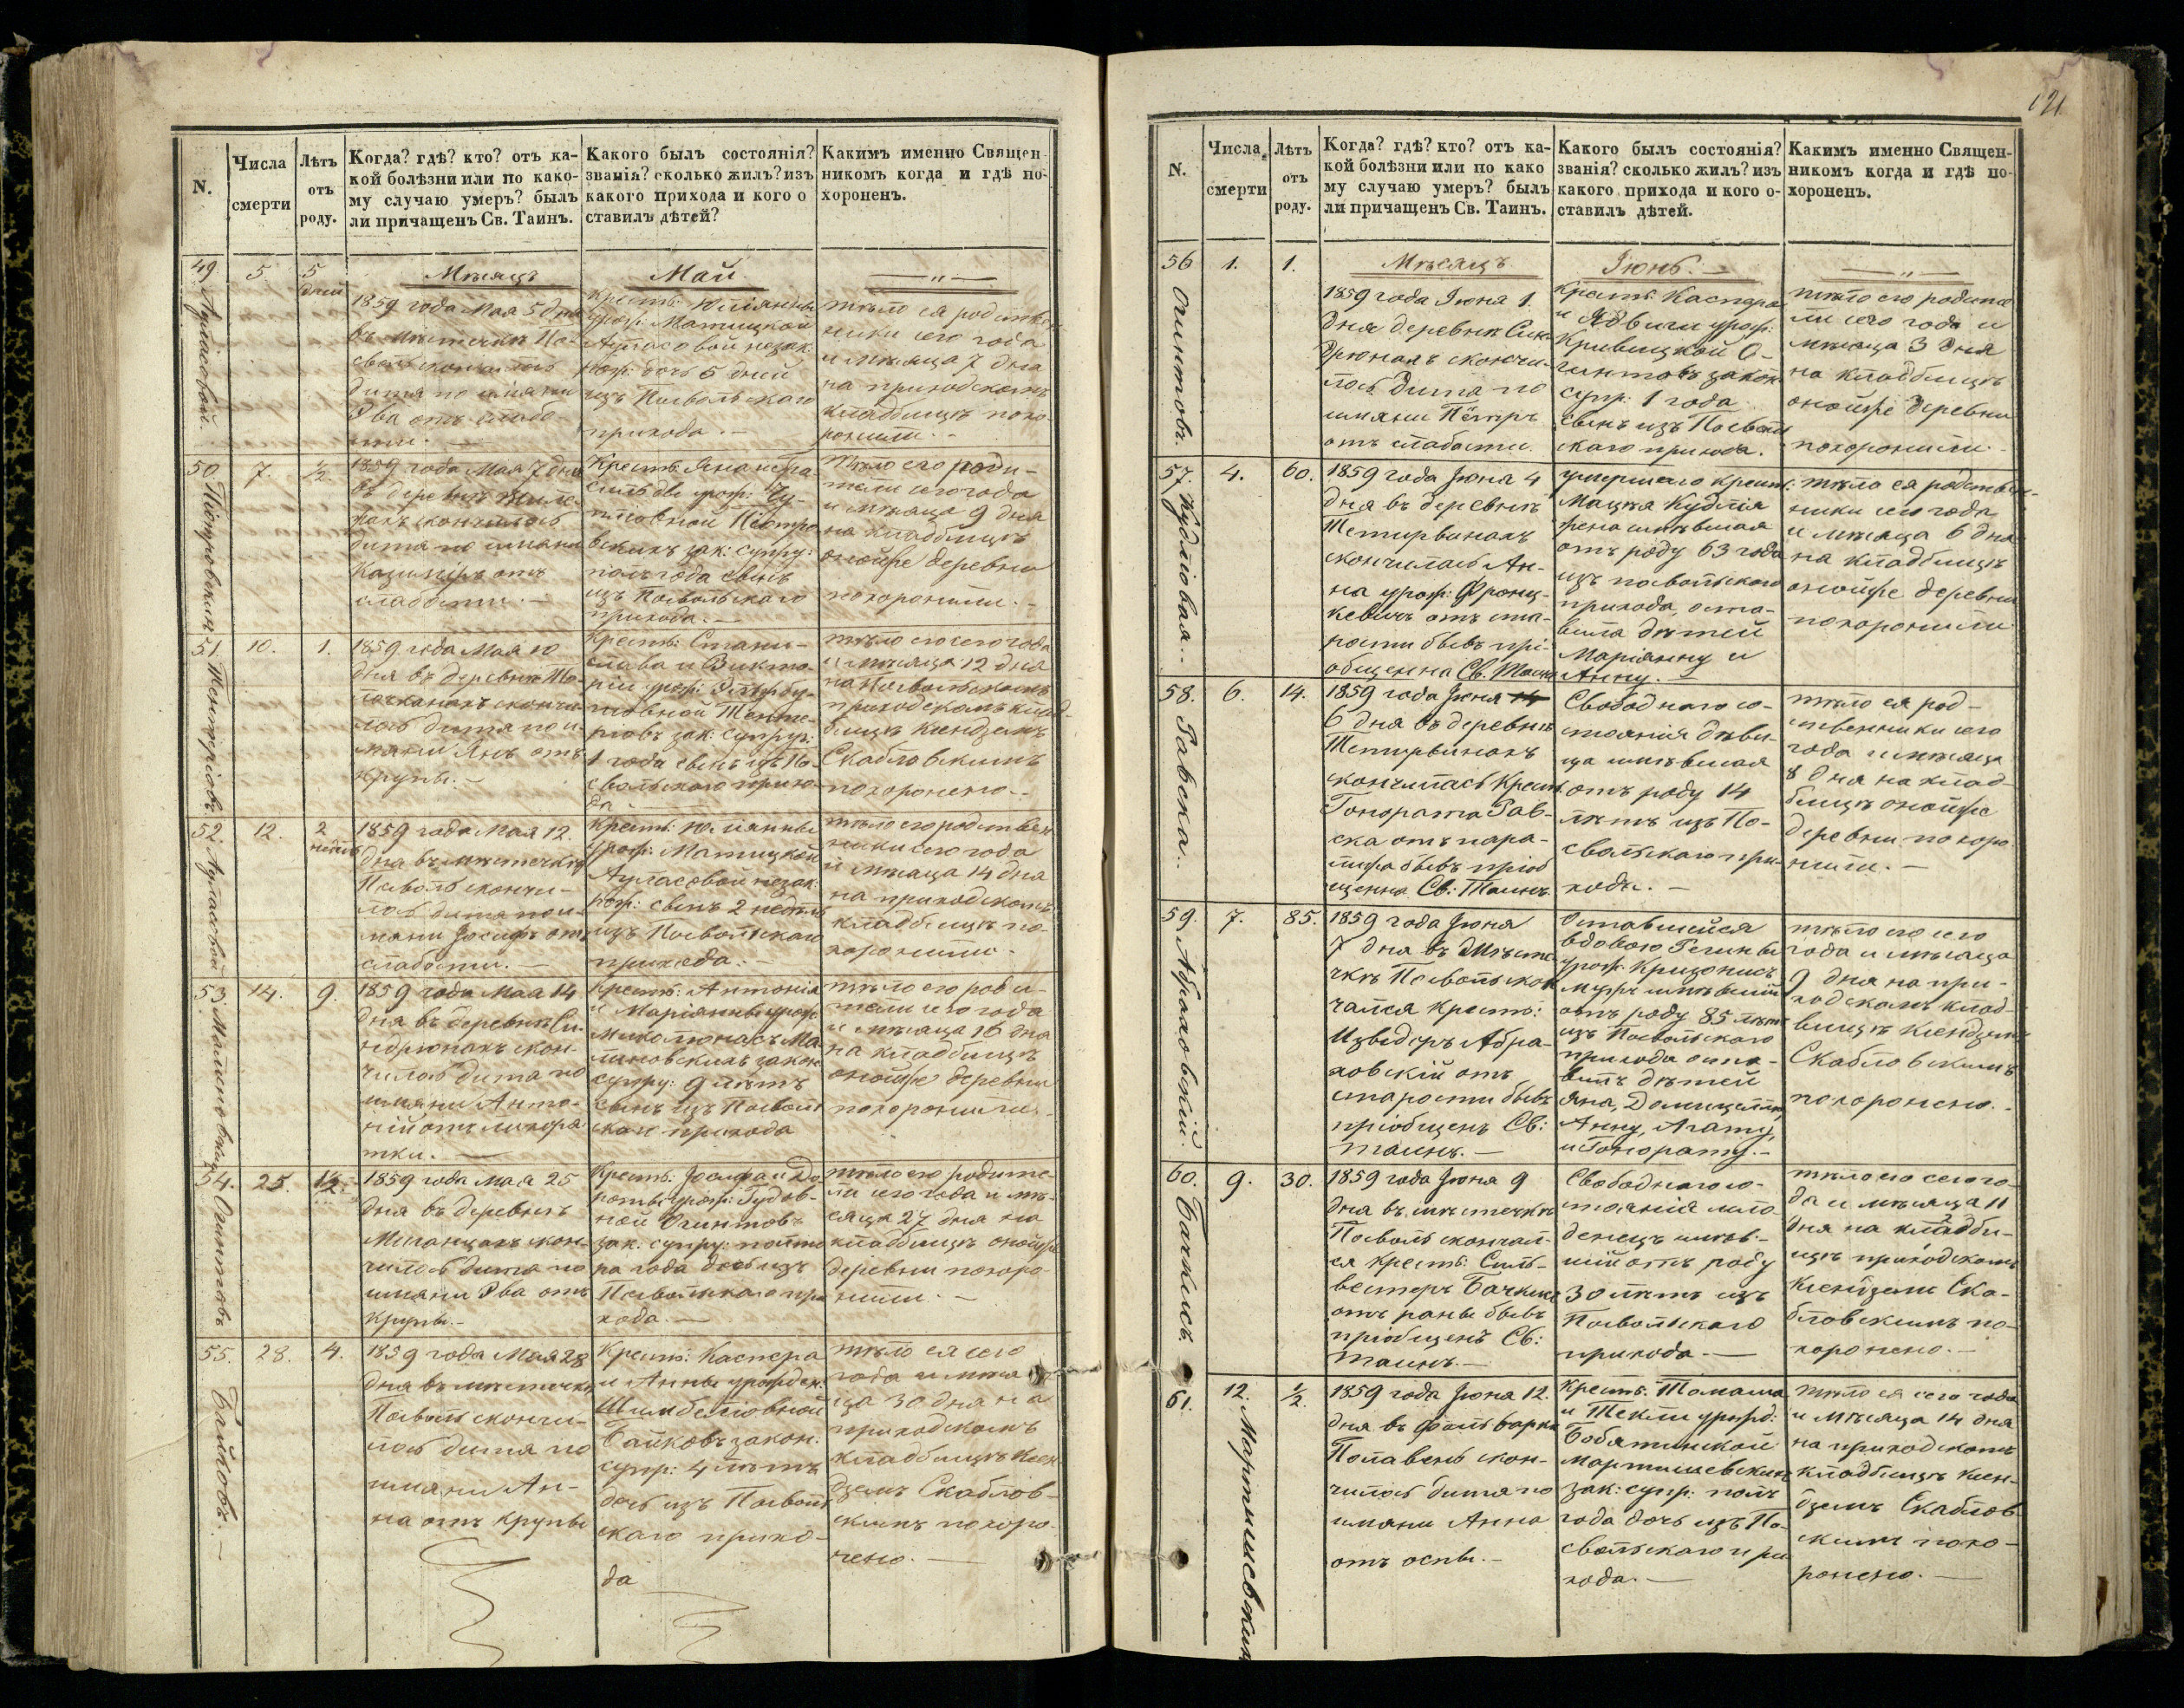 N.
Числа
смерти
Лѣтъ
отъ
роду.
Когда? гдѣ? кто? отъ ка-
кой болѣзни или по како-
му случаю умеръ? былъ
ли причащенъ Св. Таинъ.
Какого былъ состоянія?
званія? сколько жилъ? изъ
какого прихода и кого о
ставилъ дѣтей?
Какимъ именно Священ-
никомъ когда и гдѣ по-
хороненъ.
Мѣсяцъ
Май
— „ —
49
5.
5
дней
1859 года Мая 5 дня
въ мѣстечкѣ По-
дитя по имяни
Эва отъ слабо-
сти. —
Крест: Юліянны
урож: Матицкой
рож: дочь 5 дней
изъ Посвольскаго
прихода. —
тѣло ея родствен
ники сего года
и мѣсяца 7 дня
на приходскомъ
кладбищѣ похо-
ронили. -
50.
7.
½.
1859 года Мая 7 дня
въ деревнѣ
скончилось
дитя по имяни
Казимиръ отъ
слабости. —
зак: супру:
полъ года сынъ
изъ Посвольскаго
прихода. —
Тѣло его роди-
тели сего года
и мѣсяца 9 дня
на кладбищѣ
онойже деревни
похоронили. -
51.
10.
1.
1859 года Мая 10
дня въ деревнѣ
дитя по и-
мяни Янъ отъ
крупы. —
Крест: Стани-
слава и Викто-
ріи урож:
зак: супру:
1 года сынъ изъ По-
свольскаго прихо-
да
тѣло его сего года
и мѣсяца 12 дня
на Посвольскомъ
приходскомъ клад-
бищѣ Ксендземъ
Скабловскимъ
похоронено. -
52.
12.
2
недѣль
1859 года Мая 12.
дня въ мѣстечкѣ
Посволь скончи-
лось дитя по и-
мяни Іосифъ отъ
слабости. —
Крест: Юліянны
урож: Матицкой
рож: сынъ 2 недѣль
изъ Посвольскаго
прихода. —
тѣло его родствен
ники сего года
и мѣсяца 14 дня
на приходскомъ
кладбищѣ по-
хоронили -
53.
14.
9.
1859 года Мая 14
дня въ деревнѣ Си-
ндрюнахъ скон-
чилось дитя по
имяни Анто-
ній отъ лихора
тки. —
Крест: Антонія
и Маріянны урож
Миколюнасъ Ма
линовскихъ закон
супру: 9 лѣтъ
сынъ изъ Посволь
скаго прихода
тѣло его роди-
тели сего года
и мѣсяца 16 дня
на кладбищѣ
онойже деревни
похоронили. -
54.
25.
1½.
Огинтовъ
1859 года Мая 25
дня въ деревнѣ
скон-
чилось дитя по
имяни Эва отъ
крупы. -
Крест: Іосифа и До
роты урож: Гудов-
ной Огинтовъ
зак. супру: полто
ра года дочь изъ
Посвольскаго при
хода. —
тѣло его родите-
ли сего года и мѣ-
сяца 27 дня на
кладбищѣ онойже
деревни похоро-
нили. —
55.
28.
4.
Байковъ. —
1859 года Мая 28
дня въ мѣстечкѣ
Посволь скончи-
лось дитя по
имяни Ан-
на отъ крупы
Крест: Каспера
и Анны урожден:
Байковъ закон.
супр: 4 лѣтъ
дочь изъ Посволь
скаго прихо-
да
тѣло ея сего
года и мѣся
ца 30 дня на
приходскомъ
кладбищѣ Ксен
дземъ Скаблов-
скимъ похоро-
нено. —
121
N.
Числа
смерти
Лѣтъ
отъ
роду.
Когда? гдѣ? кто? отъ ка-
кой болѣзни или по како
му случаю умеръ? былъ
ли причащенъ Св. Таинъ.
Какого былъ состоянія?
званія? сколько жилъ? изъ
какого прихода и кого о-
ставилъ дѣтей.
Какимъ именно Священ-
никомъ когда и гдѣ по-
хороненъ.
Мѣсяцъ
Іюнь. —
— „ —
56
1.
1.
Огинтовъ.
1859 года Іюня 1.
дня деревнѣ Син-
дрюнахъ скончи-
лось дитя по
имяни Пётръ
отъ слабости.
Крест: Каспера
и Ядвиги урож:
Кривицкой О-
гинтовъ закон.
супр: 1 года
сынъ изъ Посволь
скаго прихода.
тѣло его родите
ли сего года и
мѣсяца 3 дня
на кладбищѣ
онойже деревни
похоронили. -
57.
4.
60.
Кудлювая. -
1859 года Іюня 4
дня въ деревнѣ
Тетирвинахъ
скончилась Ан-
на урож: Франц-
кевичъ отъ ста-
рости бывъ прі-
общенна Св. Таинъ
умершаго крест:
Мацѣя Кудлія
жена имѣвшая
отъ роду 63 года
изъ посвольскаго
прихода, оста-
вила дѣтей
Маріянну и
Анну. —
тѣло ея родствен-
ники сего года
и мѣсяца 6 дня
на кладбищѣ
онойже деревни
похоронили.
58.
6.
14.
Гавска. -
1859 года Іюня
6 дня въ деревнѣ
Тетирвинахъ
скончилась Крест:
Гонората Гав-
ска отъ пара-
лижа бывъ пріоб
щенна Св: Таинъ
Свободнаго со-
стоянія дѣви-
ца имѣвшая
отъ роду 14
лѣтъ изъ По-
свольскаго при-
хода. —
тѣло ея род-
ственники сего
года и мѣсяца
8 дня на клад-
бищѣ онойже
деревни похоро
нили. —
59.
7.
85.
Абраховскій.
1859 года Іюня
7 дня въ Мѣсте-
чкѣ Посволь скон-
чался крест:
Изыдоръ Абра-
ховскій отъ
старости бывъ
пріобщенъ Св:
таинъ. —
Оставшейся
вдовою Регины
урож.
мужъ имѣвшій
отъ роду 85 лѣтъ
изъ Посвольскаго
прихода оста-
вилъ дѣтей
Яна, Домицеллю,
Анну, Агату,
и Гонорату. —
тѣло его сего
года и мѣсяца
9 дня на при-
ходскомъ клад-
бищѣ Ксендземъ
Скабловскимъ
похоронено. -
60.
9.
30.
Бачкисъ.
1859 года Іюня 9
дня въ мѣстечкѣ
Посволь скончал-
ся крест: Силь-
вестеръ Бачкисъ
отъ раны бывъ
пріобщенъ Св:
таинъ. —
Свободнаго со-
стоянія моло
денецъ имѣв-
шій отъ роду
30 лѣтъ изъ
Посвольскаго
прихода. —
тѣло его сего го-
да и мѣсяца 11
дня на кладби-
щѣ приходскомъ
Ксендземъ Ска-
бловскимъ по-
хоронено. —
61.
12.
½.
1859 года Іюня 12.
дня въ фольваркѣ
скон-
чилось дитя по
имяни Анна
отъ оспы. —
Крест: Томаша
и Текли урожд:
зак: супр: полъ
года дочь изъ По-
свольскаго при
хода. —
тѣло ея сего года
и мѣсяца 14 дня
на приходскомъ
кладбищѣ ксен-
дземъ Скаблов
скимъ похо-
ронено. —